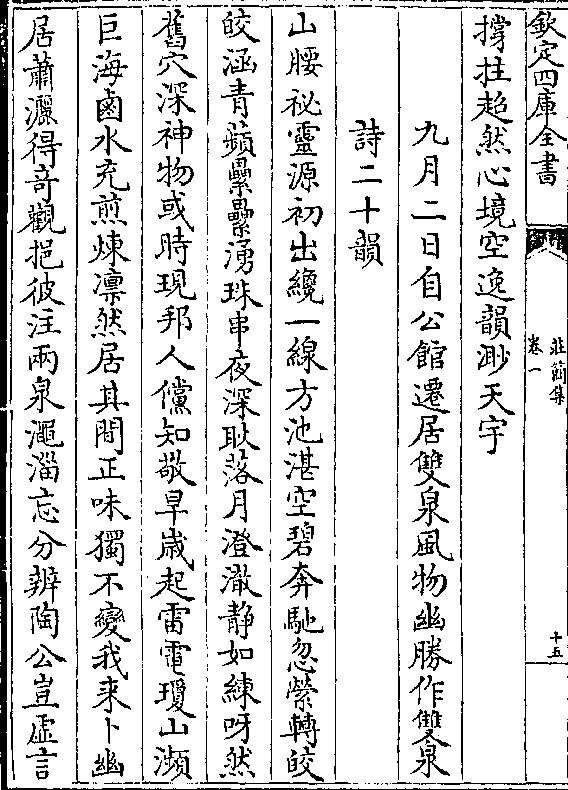 欽定四庫全書
莊簡集
卷一
十五
撐拄超然心境空逸韻渺天宇
九月二日自公館遷居雙泉風物幽勝作雙泉
詩二十韻
山腰祕靈源初出纔一線方池湛空碧奔馳忽縈轉皎
皎涵青蘋纍纍湧珠串夜深耿落月澄澈靜如練呀然
舊穴深神物或時現邦人儻知敬旱歲起雷電瓊山瀕
巨海鹵水充煎煉凛然居其間正味獨不變我来卜幽
居蕭灑得竒觀挹彼注兩泉澠淄忘分辨陶公豈虛言